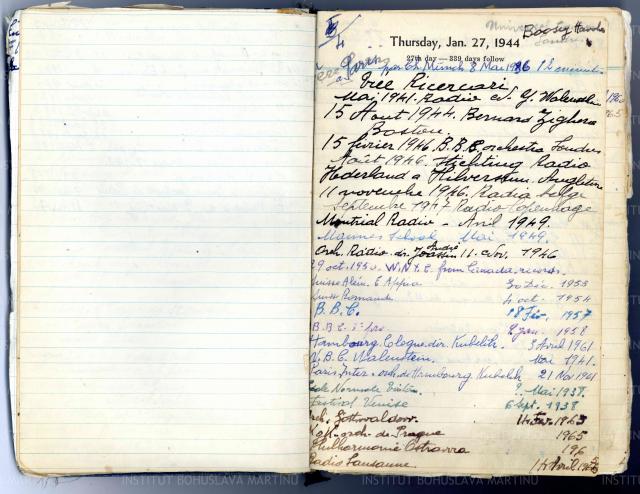 Boosey Hawkes
Thursday, Jan. 27, 1944
27th day — 339 days follow
par Ch. Münch 8 Mai 1936
Tre Ricercari
Mai 1941. Radio A. Walenstein
15 Aout 1944. Bernard Zighera
Boston.
15 fevrier 1946. B.B.C. orchestra Londres
Août 1946. Stichting Radio
Nederland a Hilversum. Angleterre
11 novembre 1946. Radio belge
Septembre 1947 Radio Copenhage
Montréal Radio - Avril 1949.
Mannes School Mai 1949.
Orch. Radio. dir. André Joassin 11. Nov. 1946
29 oct. 1950. W.N.Y.C. from Canada records
Suisse Alem. E. Appia 30 Dec. 1953
Suisse Romande 4 oct. 1954
B.B.C. 18 Fev. 1957
B.B.C. 2 Jan. 1958
Hambourg. Cologne. dir. Kubelik. 3 Avril 1961
N.B.C. Walenstein. Mai 1941.
Paris Inter. orch. de Hambourg Kubelik 21 Nov 1961
Ecole Normale Mai 1938.
Festival Venise 6 Sept. 1938
Orch. Gottwaldov. 14 Fev. 1963
orch. de Prague 1965
Philharmonie Ostrava 196
Radio Lausanne. 14 Avril
INSTITUT BOHUSLAVA MARTINŮ